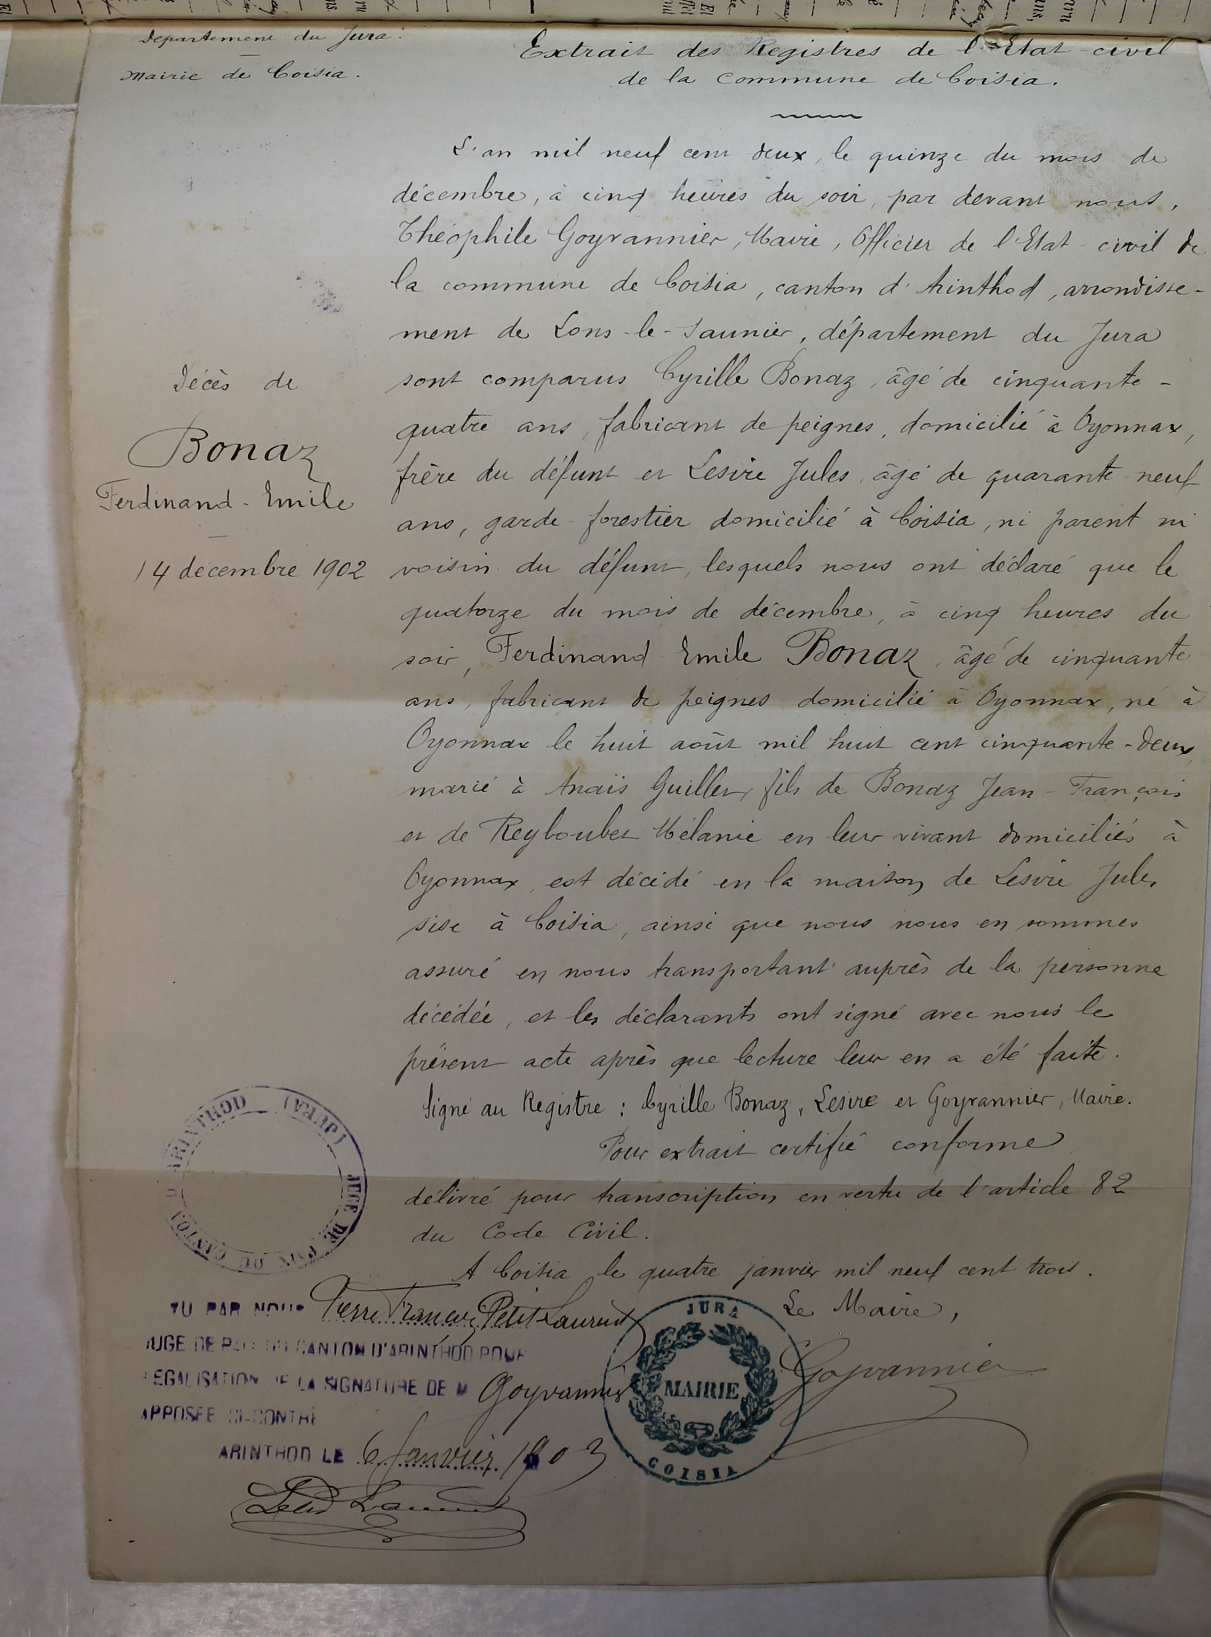 Département du Jura.
Mairie de Coisia.
Extrait des Registres de l'Etat-civil
de la commune de Coisia.
L'an mil neuf cent deux, le quinze du mois de
décembre, à cinq heures du soir, par devant nous,
Théophile Goyvannier, Maire, Officier de l'Etat-civil de
la commune de Coisia, canton d'Arinthod, arrondisse-
ment de Lons-le-Saunier, département du Jura
sont comparus Cyrille Bonaz, âgé de cinquante-
quatre ans, fabricant de peignes, domicilié à Oyonnax,
frère du défunt et Lesire Jules, âgé de quarante-neuf
ans, garde-forestier domicilié à Coisia, ni parent ni
voisin du défunt, lesquels nous ont déclaré que le
quatorze du mois de décembre, à cinq heures du
soir, Ferdinand Emile Bonaz, âgé de cinquante
ans, fabricant de peignes domicilié à Oyonnax, né à
Oyonnax le huit août mil huit cent cinquante-deux,
marié à Anaïs Guillet, fils de Bonaz Jean-François
et de Reyboubet Mélanie en leur vivant domiciliés à
Oyonnax, est décédé en la maison de Lesire Jules
sise à Coisia, ainsi que nous nous en sommes
assuré en nous transportant auprès de la personne
décédée, et les déclarants ont signé avec nous le
présent acte après que lecture leur en a été faite.
Signé au Registre : Cyrille Bonaz, Lesire et Goyvannier, Maire.
Pour extrait certifié conforme
délivré pour transcription en vertu de l'article 82
du Code Civil.
A Coisia le quatre janvier mil neuf cent trois.
Le Maire,
Goyvannier
Décès de
Bonaz
Ferdinand-Emile
14 décembre 1902
JUGE DE PAIX DU CANTON D'ARINTHOD (JURA)
VU PAR NOUS Pierre François Petit-Laurent
JUGE DE PAIX DU CANTON D'ARINTHOD POUR
LEGALISATION DE LA SIGNATURE DE M Goyvannier
APPOSEE CI-CONTRE
ARINTHOD LE 6 Janvier 1903
Petit Laurent
JURA
MAIRIE
COISIA